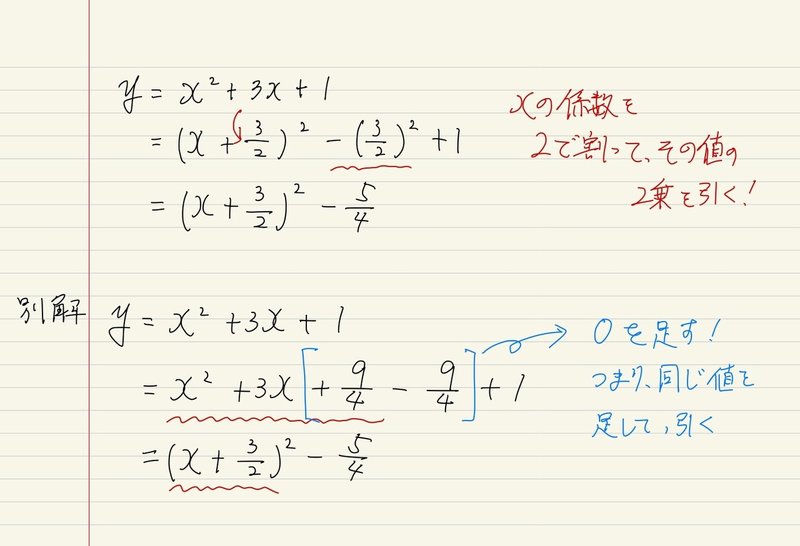 y = x² + 3x + 1
= (x + 3/2)² - (3/2)² + 1
= (x + 3/2)² - 5/4
xの係数を
2で割って、その値の
2乗を引く!
別解 y = x² + 3x + 1
= x² + 3x [+ 9/4 - 9/4] + 1
= (x + 3/2)² - 5/4
0を足す!
つまり、同じ値を
足して、引く